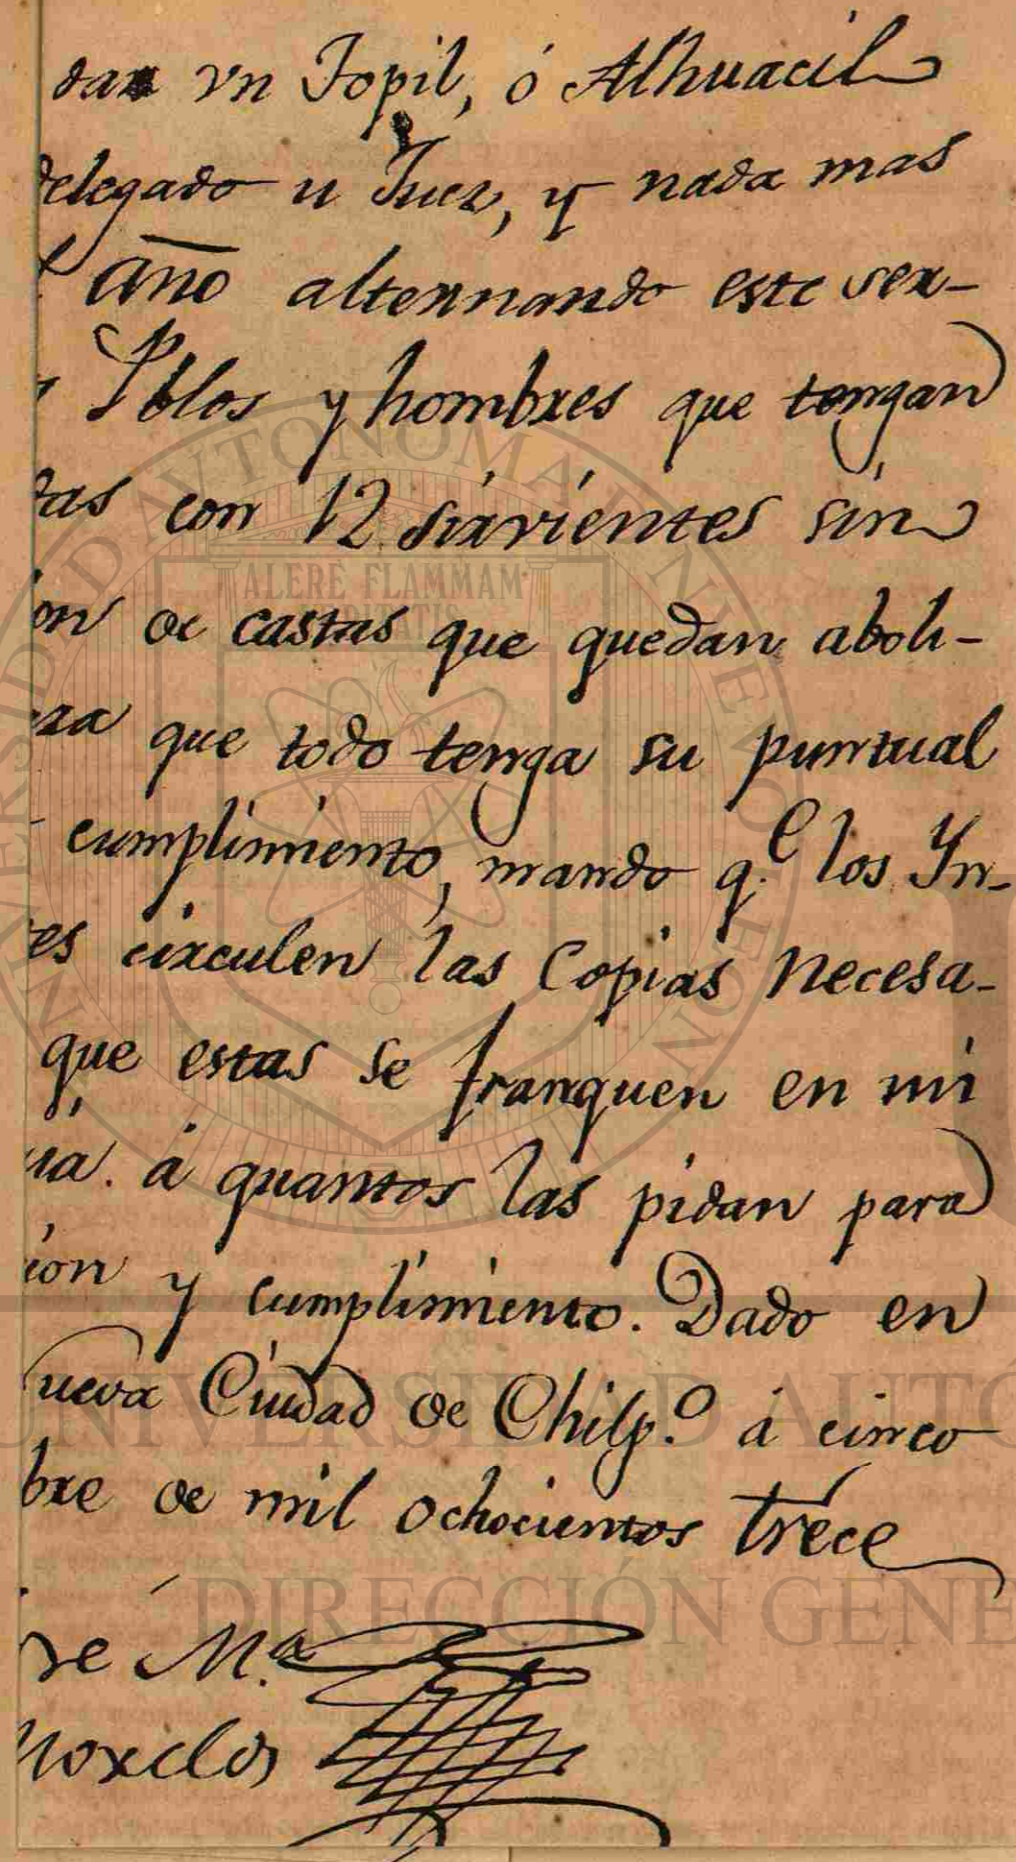 dar vn Topil, ó Alhuacil
delegado u Juez, y nada mas
año alternando este ser-
Pblos y hombres que tengan
das con 12 sirvientes sin
on de castas que quedan aboli-
ra que todo tenga su puntual
cumplimiento, mando q.e los Yn-
tes circulen las Copias necesa-
que estas se franquen en mi
ria. á quantos las pidan para
cion y cumplimiento. Dado en
ueva Ciudad de Chilp.o á cinco
bre de mil ochocientos trece
se M.a
Morelos
ALERE FLAMMAM
VERITATIS
UNIVERSIDAD AUTÓ
DIRECCIÓN GENE
UNIVERSIDAD AVTONOMA DE NVEVO LEON